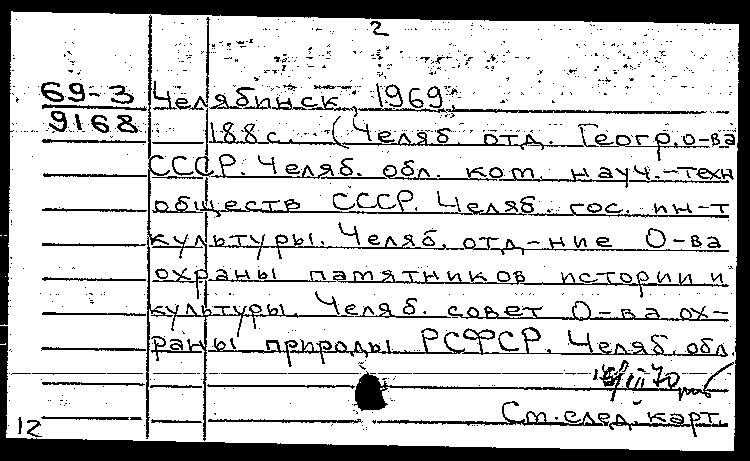 2
69-3 Челябинск, 1969.
9168 188с. (Челяб. отд. Геогр. о-ва
СССР. Челяб. обл. ком. науч.-техн
обществ СССР. Челяб. гос. ин-т
культуры. Челяб. отд-ние О-ва
охраны памятников истории и
культуры. Челяб. совет О-ва ох-
раны природы РСФСР. Челяб. обл.
/III 70
См. след. карт.
12